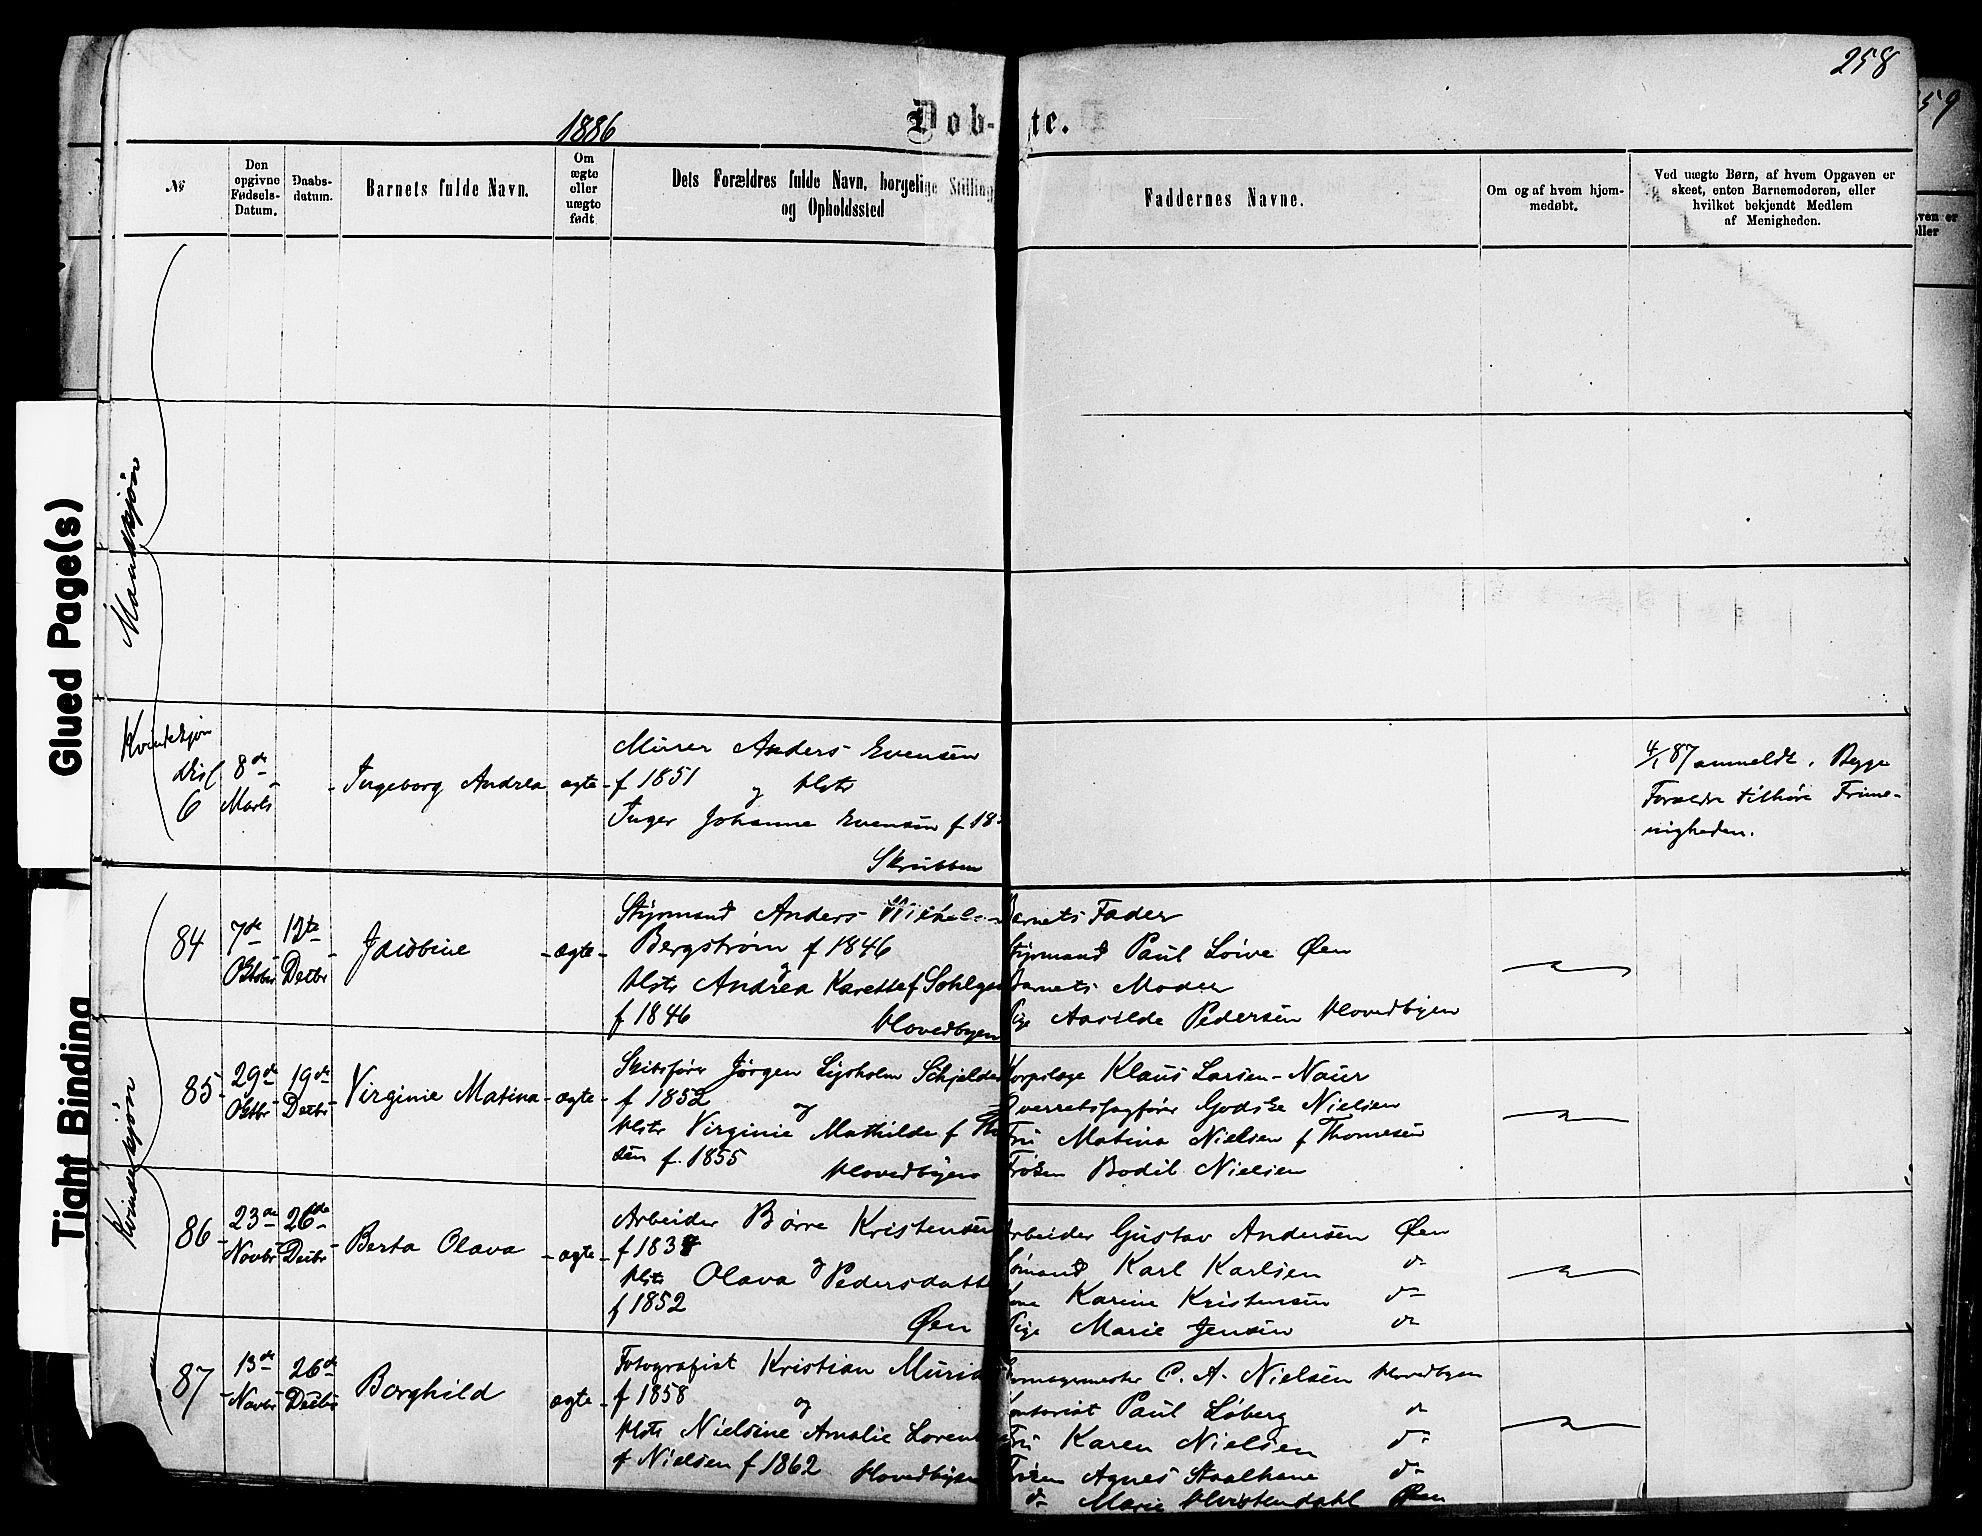 258
59
1886
Døb-
te.
№
Den opgivne Fødsels-Datum.
Daabs-datum.
Barnets fulde Navn.
Om ægte eller uægte født
Dets Forældres fulde Navn, borgelige Stilling
og Opholdssted
Faddernes Navne.
Om og af hvem hjem-
medøbt.
Ved uægte Børn, af hvem Opgaven er
skeet, enten Barnemoderen, eller
hvilket bekjendt Medlem
af Menigheden.
ven er
ller
Glued Page(s)
Tight Binding
Mandkjøn
Kvindekjøn
6
8de
Marts
Ingeborg Andrea
ægte
Murer Anders Evensen
f 1851 og Hstr
Inger Johanne Evensen f 18
Skrubben
4/1 87 anmeldt. Begge
Forældre tilhøre Frime-
nigheden.
Kvindekjøn
84
7de
Oktober
12te
Decbr
Jacobine
ægte
Styrmand Anders
Bergstrøm f 1846
og
Hstr Andrea Karette f Sohlge
f 1846 Hovedbyen
Barnets Fader
Styrmand Paul Löive Øen
Barnets Moder
Pige Aasilde Pedersen Hovedbyen
85
29de
Oktbr
19de
Decbr
Virginie Matina
ægte
Skibsfører Jørgen Ligholm Schjelde
f 1852 og
Hstr Virginie Mathilde f Th
sen f. 1855 Hovedbyen
Korpslæge Klaus Larsen-Naur
Overretssagfører Godske Nielsen
Fru Matina Nielsen f Thomesen
Frøken Bodil Nielsen
86
23de
Novbr
26de
Decbr
Berta Olava
ægte
Arbeider Börre Kristensen
f 1838
og
Hstr Olava Pedersdatte
f 1852
Øen
Arbeider Gustav Andersen Øen
Sømand Karl Karlsen do
Kone Karine Kristensen do
Pige Marie Jensen do
87
13de
Novbr
26de
Decbr
Borghild
ægte
Fotografist Kristian
f 1858 og
Hstr Nielsine Amalie Loren
f Nielsen f 1862 Hovedbyen
C. A. Nielsen Hovedbyen
Kontorist Paul Löberg do
Fru Karen Nielsen do
Frøken Agnes Staalhane do
do Marie Hvistendahl Øen